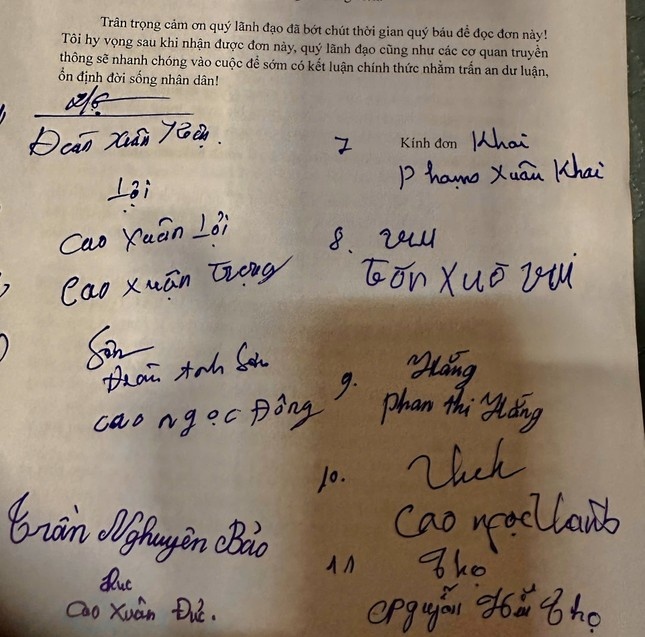 Trân trọng cảm ơn quý lãnh đạo đã bớt chút thời gian quý báu để đọc đơn này!
Tôi hy vọng sau khi nhận được đơn này, quý lãnh đạo cũng như các cơ quan truyền
thông sẽ nhanh chóng vào cuộc để sớm có kết luận chính thức nhằm trấn an dư luận,
ổn định đời sống nhân dân!
Xuân
Lợi
Cao Xuân Lợi
Cao Xuân Trọng
Sơn
Anh Sơn
Cao Ngọc Đông
Trần Nghuyên Bảo
Đức
Cao Xuân Đức.
7 Kính đơn Khai
Phạm Xuân Khai
8. Vui
Vui
9. Hằng
Phan Thị Hằng
10.
Cao Ngọc
11 Thọ
Thọ